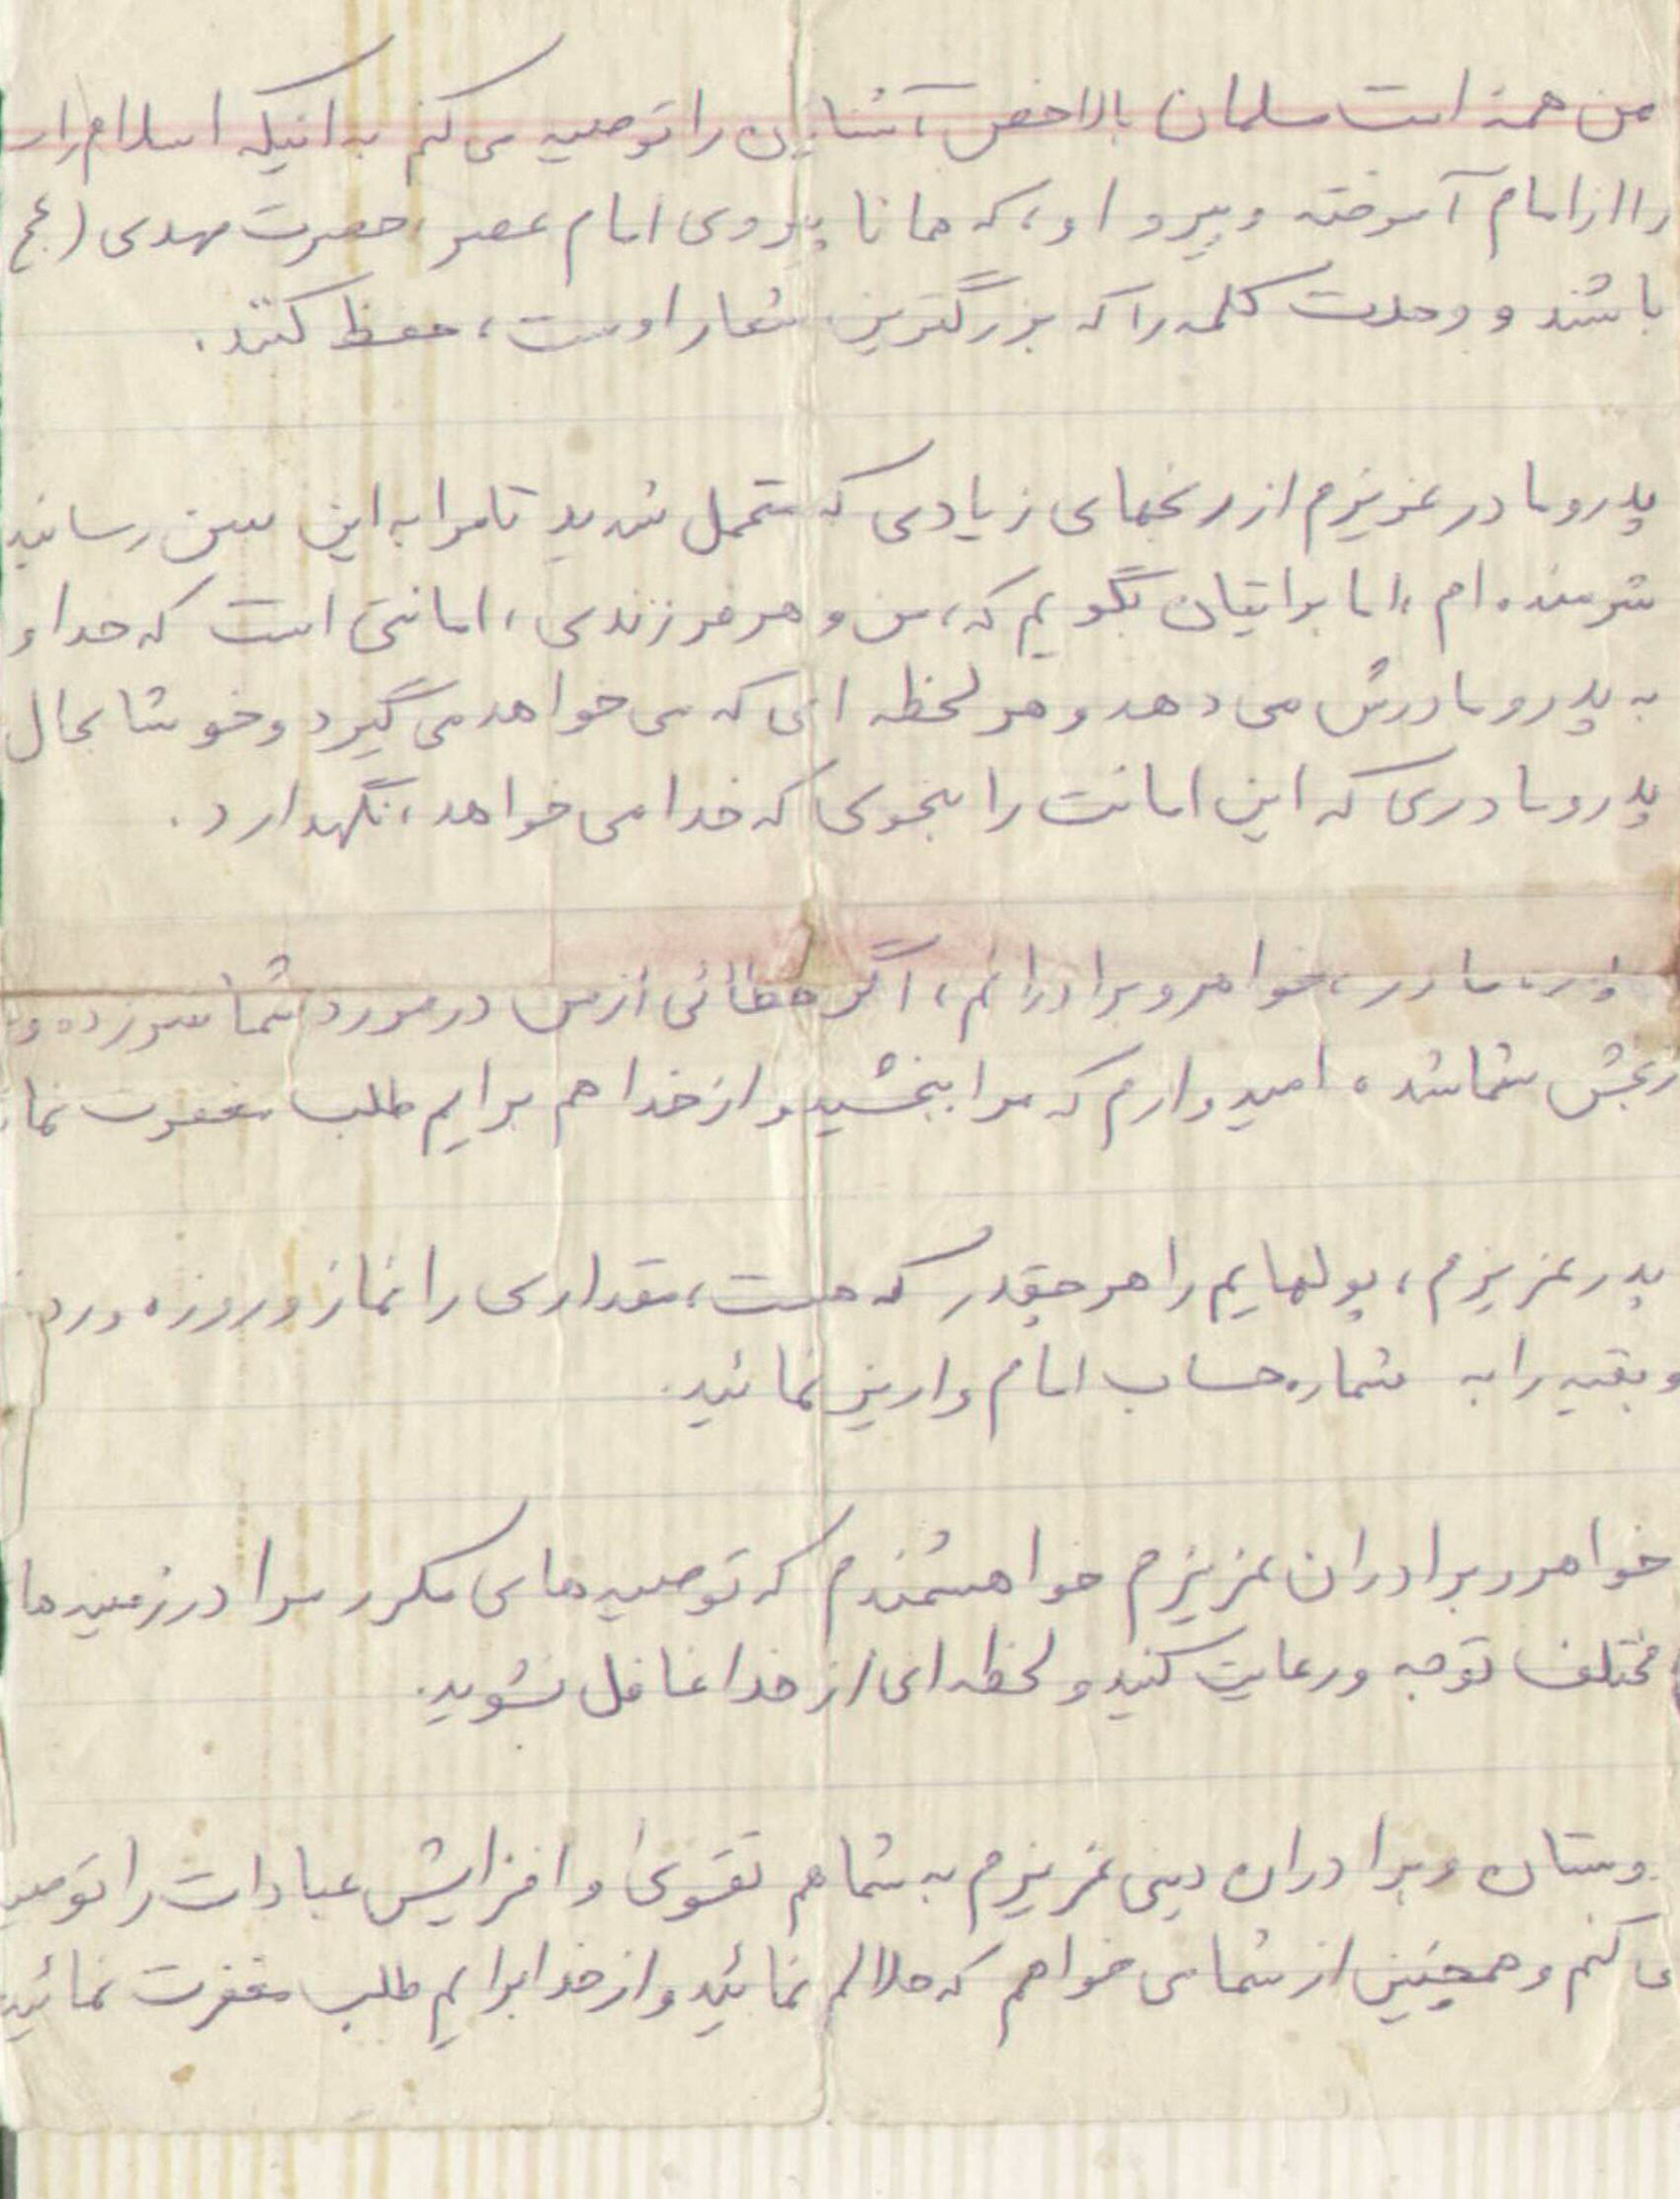 من همه امت مسلمان بالاخص آشنایان را توصیه می کنم به اینکه اسلام را
را از امام آموخته و پیرو او، که همانا پیروی امام عصر، حضرت مهدی (عج
باشند و وحدت کلمه را که بزرگترین شعار اوست، حفظ کنند.
پدر و مادر عزیزم از رنجهای زیادی که متحمل شدید تا مرا به این سن رساند
شرمنده ام، اما برایتان بگویم که، من و هر فرزندی، امانتی است که خداو
به پدر و مادرش می دهد و هر لحظه ای که می خواهد می گیرد و خوشا بحال
پدر و مادری که این امانت را بنحوی که خدا می خواهد، نگهدارد.
مادر، خواهر و برادرانم، اگر خطائی از من در مورد شما سرزده و
رنجش شما شده امیدوارم که مرا ببخشید و از خدا هم برایم طلب مغفرت نما
پدر عزیزم، پولهایم را هر چقدر که هست، مقداری را نماز و روزه و رد
و بقیه را به شماره حساب امام واریز نمائید.
خواهر و برادران عزیزم خواهشمندم که توصیه های مکرر مرا در زمینه ها
مختلف توجه و رعایت کنید و لحظه ای از خدا غافل نشوید.
وستان و برادران دینی عزیزم به شما هم تقوی و افزایش عبادات را توصیه
می کنم و همچنین از شما می خواهم که حلالم نمائید و از خدا برایم طلب مغفرت نمائید